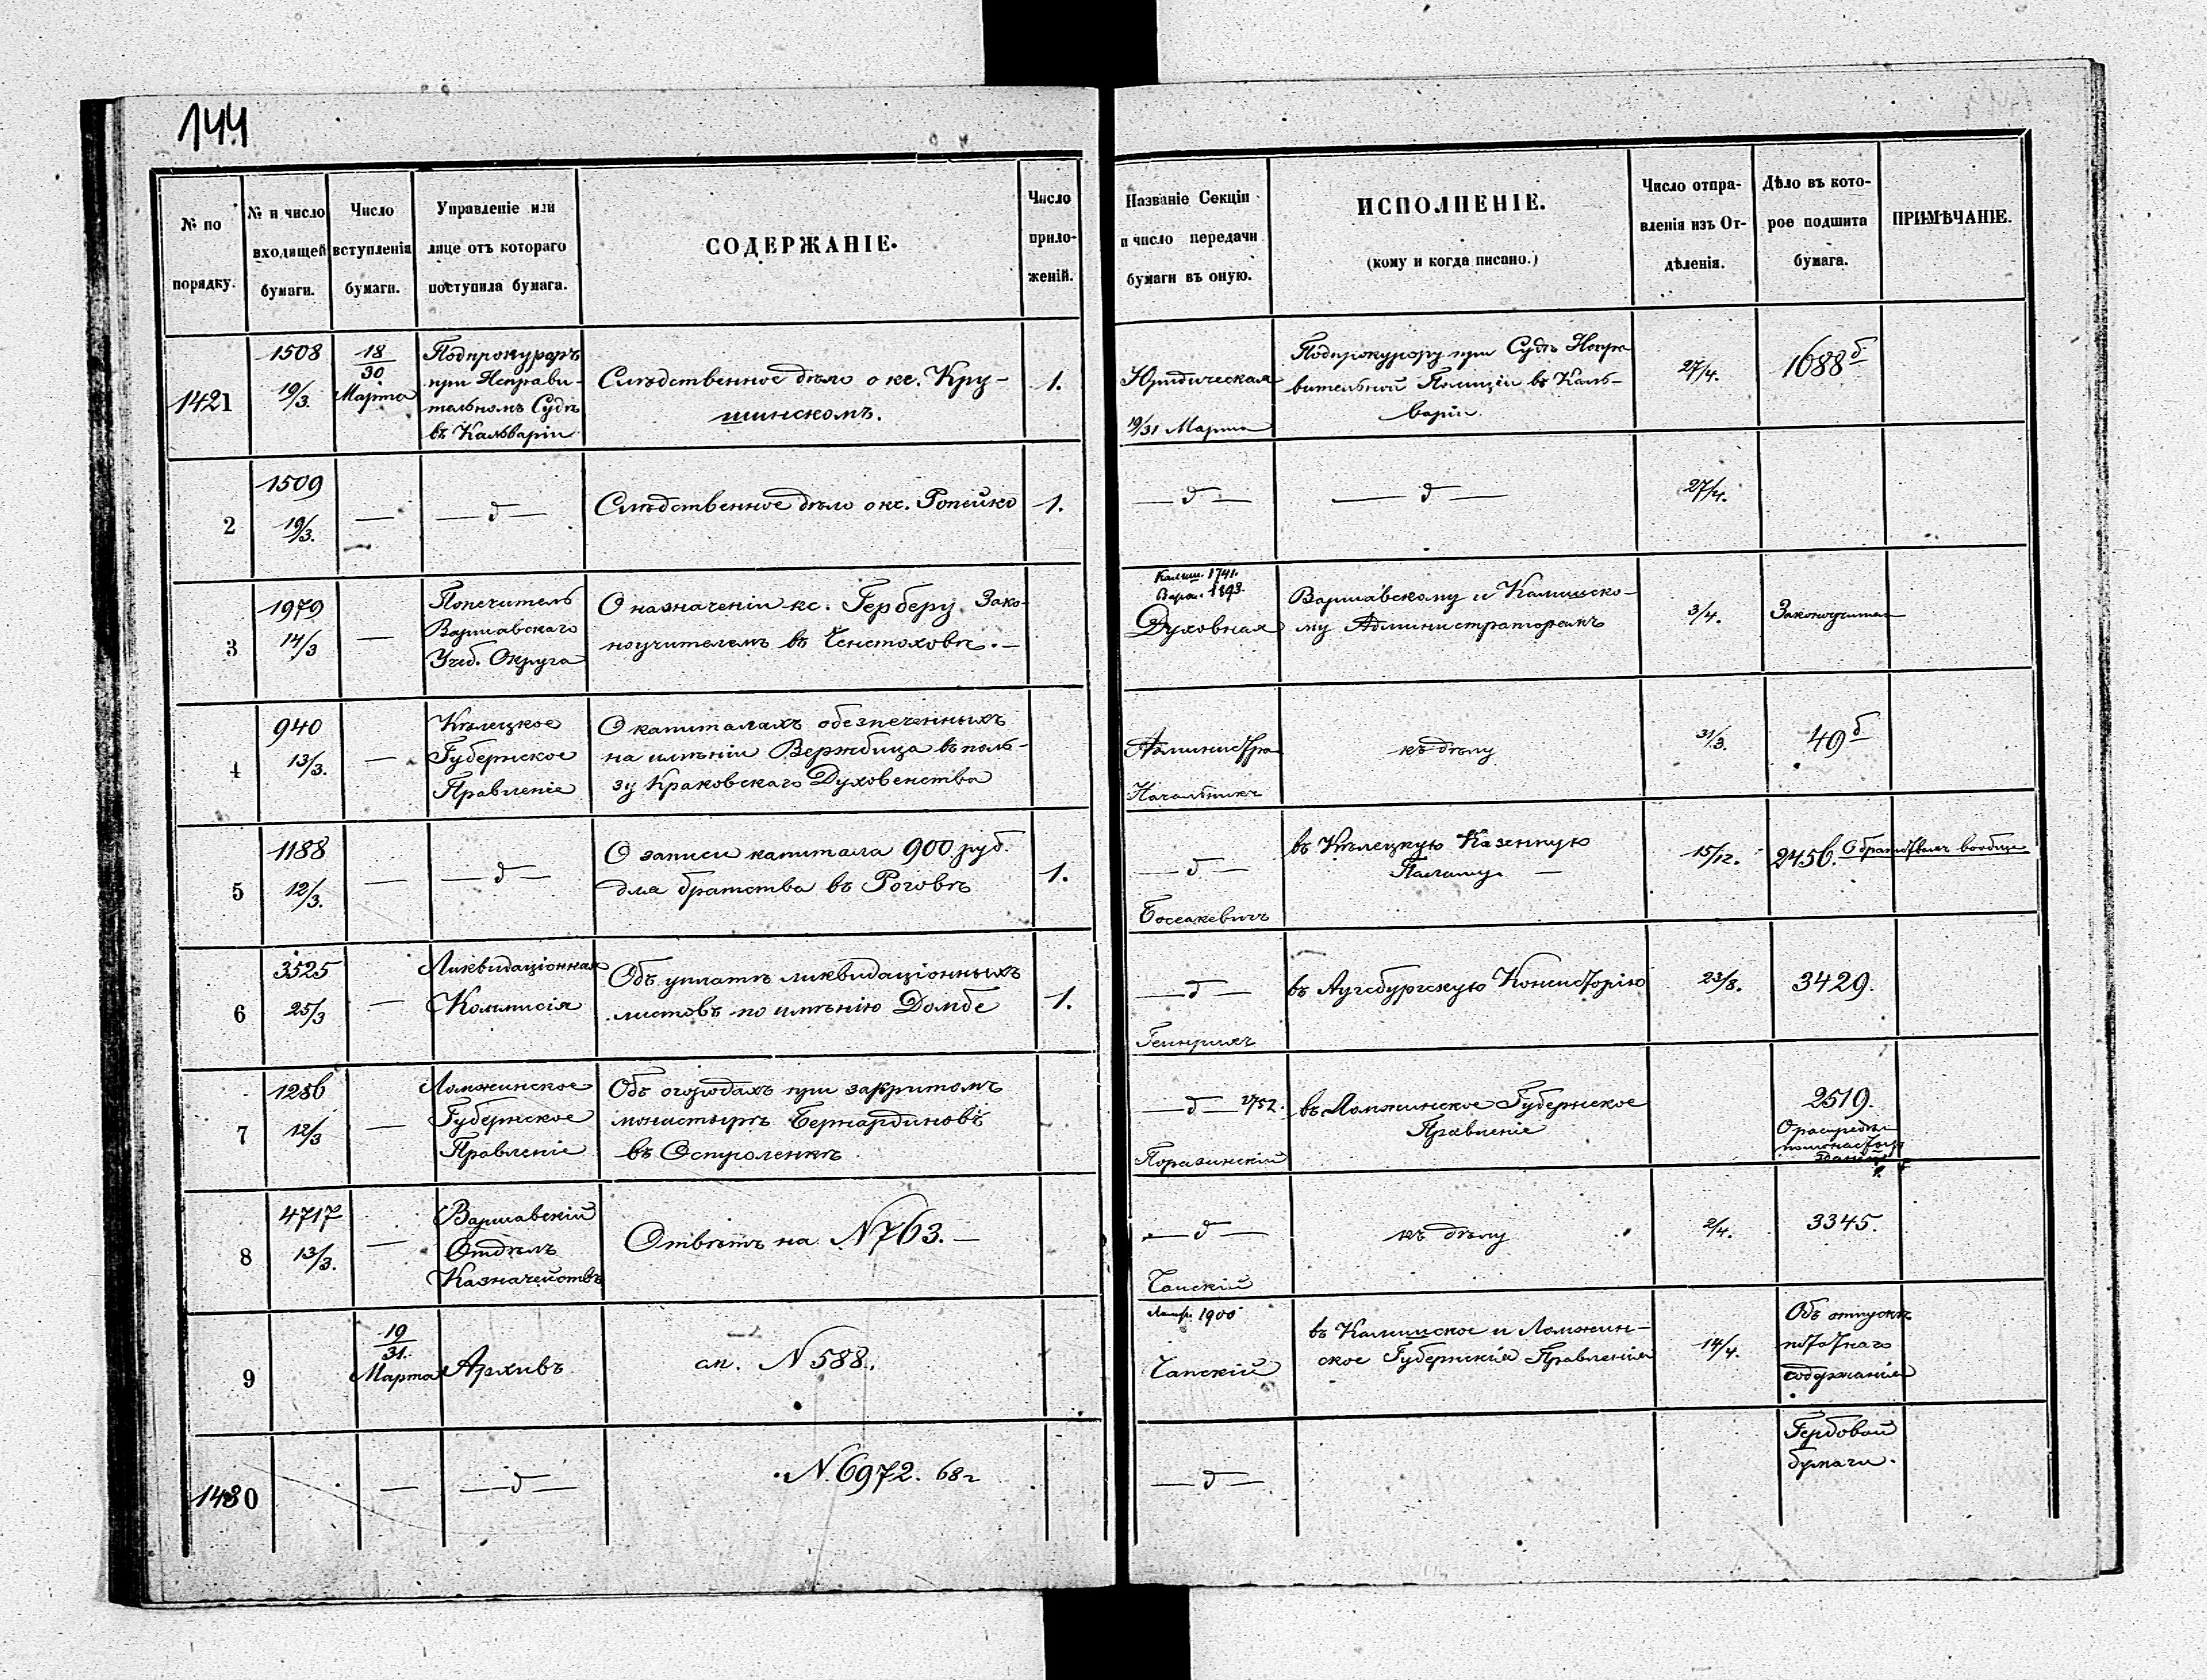 144
№ по порядку.
№ и число входящей бумаги.
Число вступленія бумаги.
Управленіе или лице отъ котораго поступила бумага.
СОДЕРЖАНІЕ.
Число приложеній.
Названіе Секціи и число передачи бумаги въ оную.
ИСПОЛНЕНІЕ.
(кому и когда писано.)
Число отправленія изъ Отдѣленія.
Дѣло въ которое подшита бумага.
ПРИМѢЧАНІЕ.
1421
1508
19/3.
18/30
Марта
Подпрокуроръ
при Исправи-
тельномъ Судѣ
въ Кальваріи
Слѣдственное дѣло о кс. Кру-
шинскомъ.
1.
Юридическая
19/31 Марта
Подпрокурору при Судѣ Испра
вительной Полиціи въ Каль-
варіи.
27/4.
1688б
2
1509
19/3.
—
— д —
Слѣдственное дѣло о кс. Ропейко
1.
— д —
— д —
27/4.
3
1979
14/3
—
Попечитель
Варшавскаго
Учеб. Округа
О назначеніи кс. Герберу Зако-
ноучителемъ въ Ченстоховѣ. —
Калиш. 1741.
Варш. 1893.
Духовная
Варшавскому и Калишско-
му Администраторамъ
3/4.
Законоучител
4
940
13/3.
—
Кѣлецкое
Губернское
Правленіе
О капиталахъ обезпеченныхъ
на имѣніи Вержбица въ поль-
зу Краковскаго Духовенства
Администра
Начальникъ
къ дѣлу
31/3.
49б
5
1188
12/3.
—
— д —
О записи капитала 900 руб.
для братства въ Роговѣ
1.
— д —
Боссакевичъ
въ Кѣлецкую Казенную
Палату —
15/12.
2456.
О братствахъ вообще
6
3525
25/3
—
Ликвидаціонная
Коммисія
Объ уплатѣ ликвидаціонныхъ
листовъ по имѣнію Домбе
1.
— д —
Генрихъ
въ Аугсбургскую Консисторію
23/8.
3429.
7
1256
12/3
—
Ломжинское
Губернское
Правленіе
Объ огородахъ при закритомъ
монастырѣ Бернардиновъ
въ Остроленкѣ
— д — 1752.
Поразинскій
въ Ломжинское Губернское
Правленіе
2519.
О распредѣл
помонастыр
зданій
8
4717
13/3.
—
Варшавскій
Отдѣлъ
Казначействъ
Отвѣтъ на N 763. —
— д —
Чапскій
къ дѣлу
2/4.
3345.
9
19/31.
Марта
Архивъ
ап. N 588.
1900
Чапскій
въ Калишское и Ломжин-
ское Губернскія Правленія
14/4.
Объ отпускѣ
штатнаго
содержанія
1430
—
— д —
N. 6972. 68 г
— д —
Гербовой
бумаги.